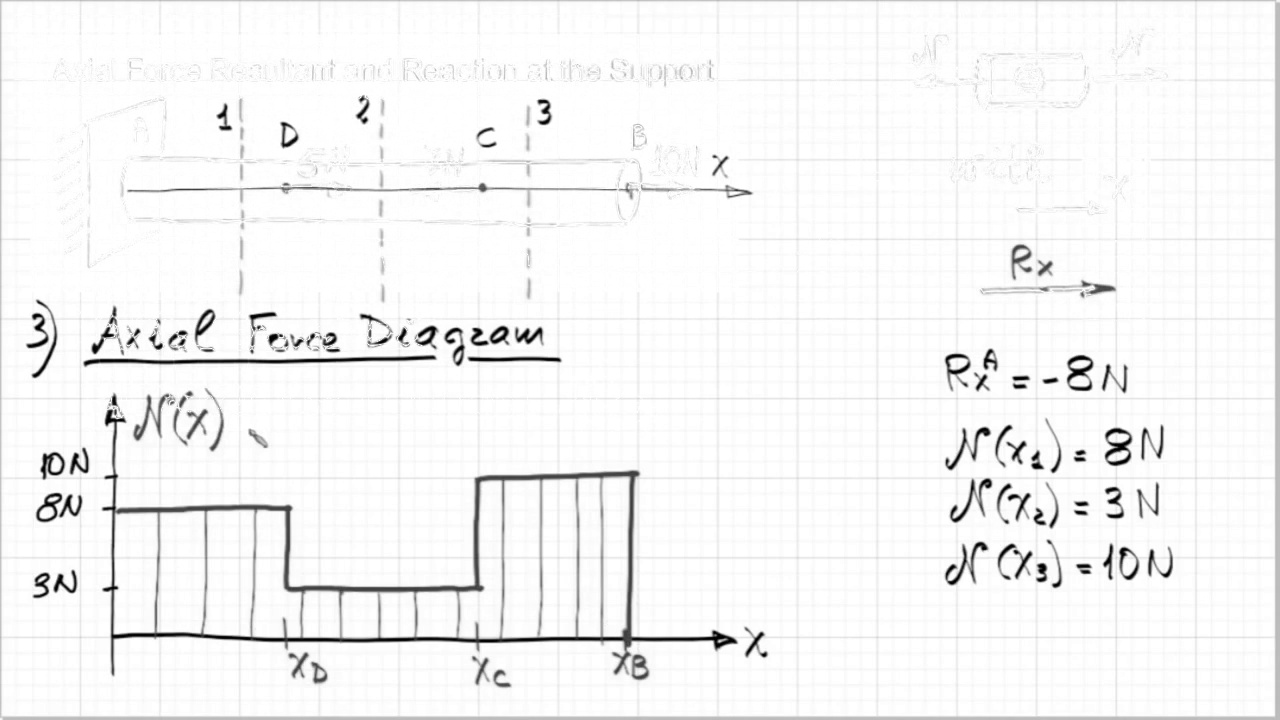 Axial Force Resultant and Reaction at the Support
1 2 3
A D C B
5N 7N 10N X
N N
with
X
Rx
3) Axial Force Diagram
N(x)
10N
8N
3N
X
XD XC XB
RxA = -8N
N(x1) = 8N
N(x2) = 3N
N(x3) = 10N